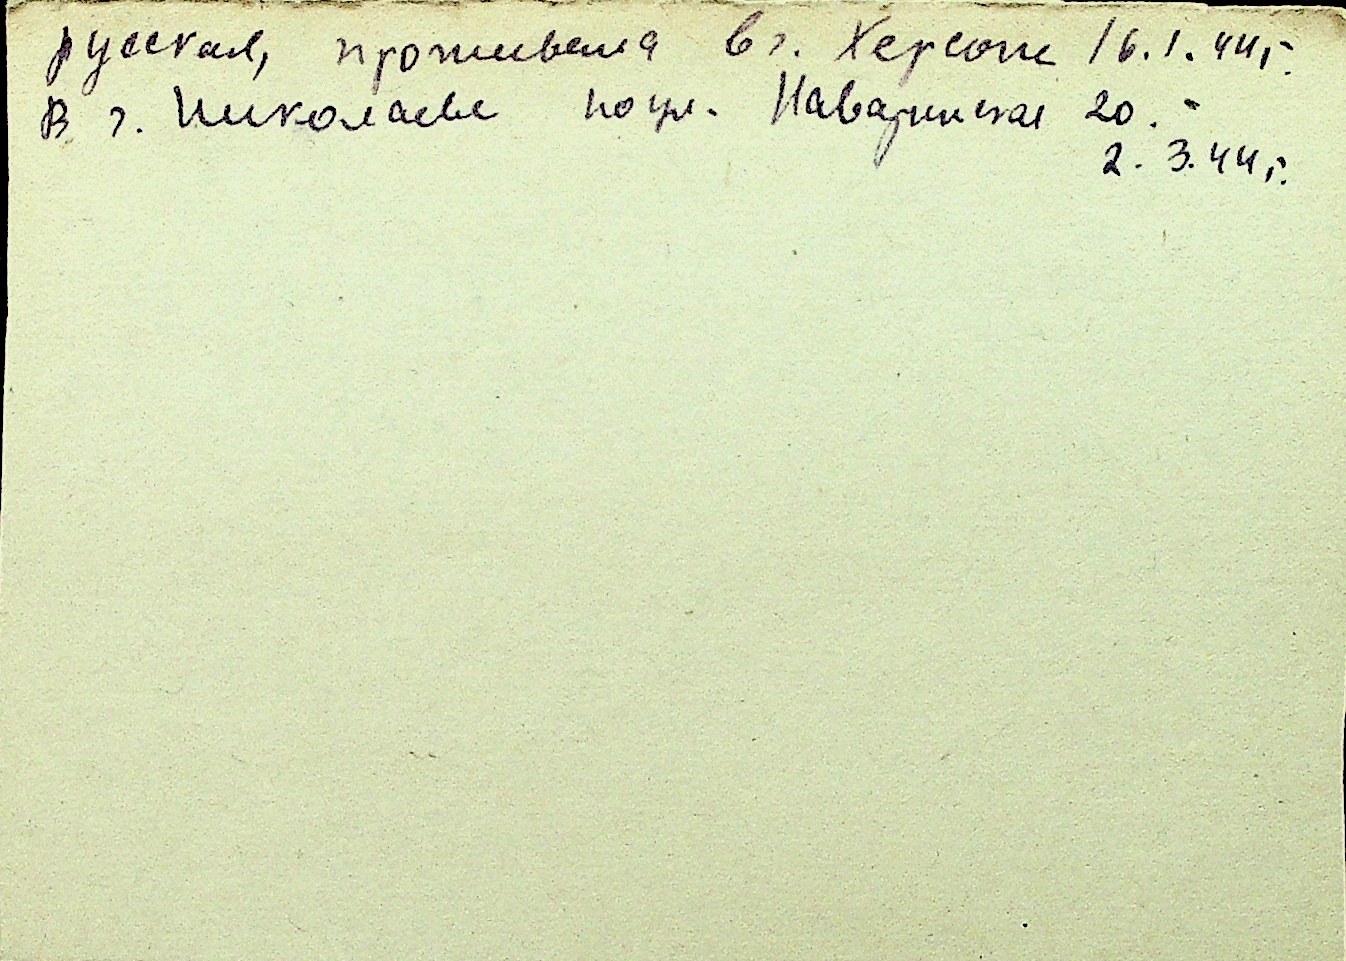 русская, проживала в г. Херсоне 16.1.44 г.
В г. Николаеве по ул. Наваринская 20. -
2. 3. 44 г.